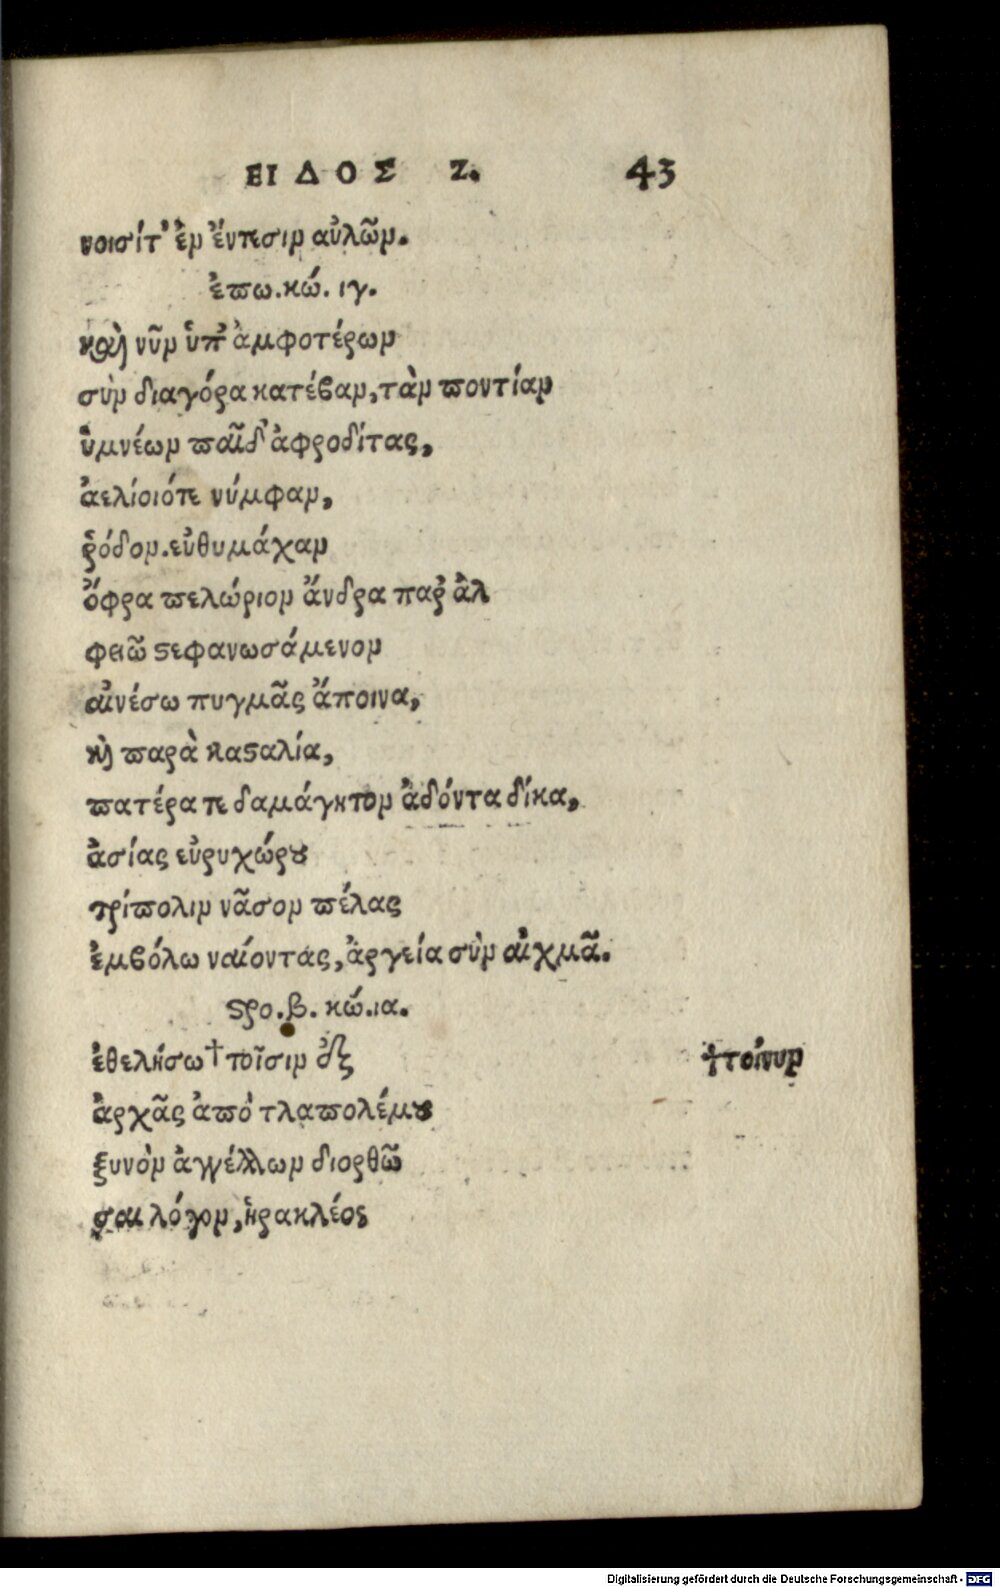 ΕΙΔΟΣ Ζ. 43
νοισίτ' ἐν ἔντεσιν αὐλῶν.
ἐπω. κώ. ιγ.
καὶ νῦν ὑπ' ἀμφοτέρων
σὺν διαγόρα κατέβαν, τὰν ποντίαν
ὑμνέων παῖδ' ἀφροδίτας,
ἀελίοιότε νύμφαν,
ῥόδον. εὐθυμάχαν
ὄφρα πελώριον ἄνδρα παρ' ἀλ
φειῶ στεφανωσάμενον
αἰνέσω πυγμᾶς ἄποινα,
καὶ παρὰ κασταλία,
πατέρα τε δαμάγητον ἁδόντα δίκα,
ἀσίας εὐρυχώρου
τρίπολιν νᾶσον πέλας
ἐμβόλω ναίοντας, ἀργεία σὺν αἰχμᾶ.
στρο. β. κώ. ια.
ἐθελήσω † τοῖσιν ἐξ †τοίνυν
ἀρχᾶς ἀπὸ τλαπολέμου
ξυνὸν ἀγγέλλων διορθῶ
σαι λόγον, ἡρακλέος
Digitalisierung gefördert durch die Deutsche Forschungsgemeinschaft - DFG